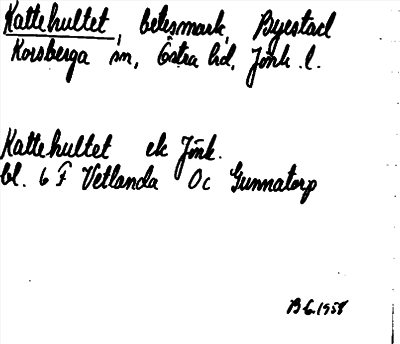 Kattehultet, betesmark, Byestad
Korsberga sn, Östra hd, Jönk. l.
Kattehultet ek Jönk.
bl. 6 F Vetlanda Oc Gunnatorp
1958